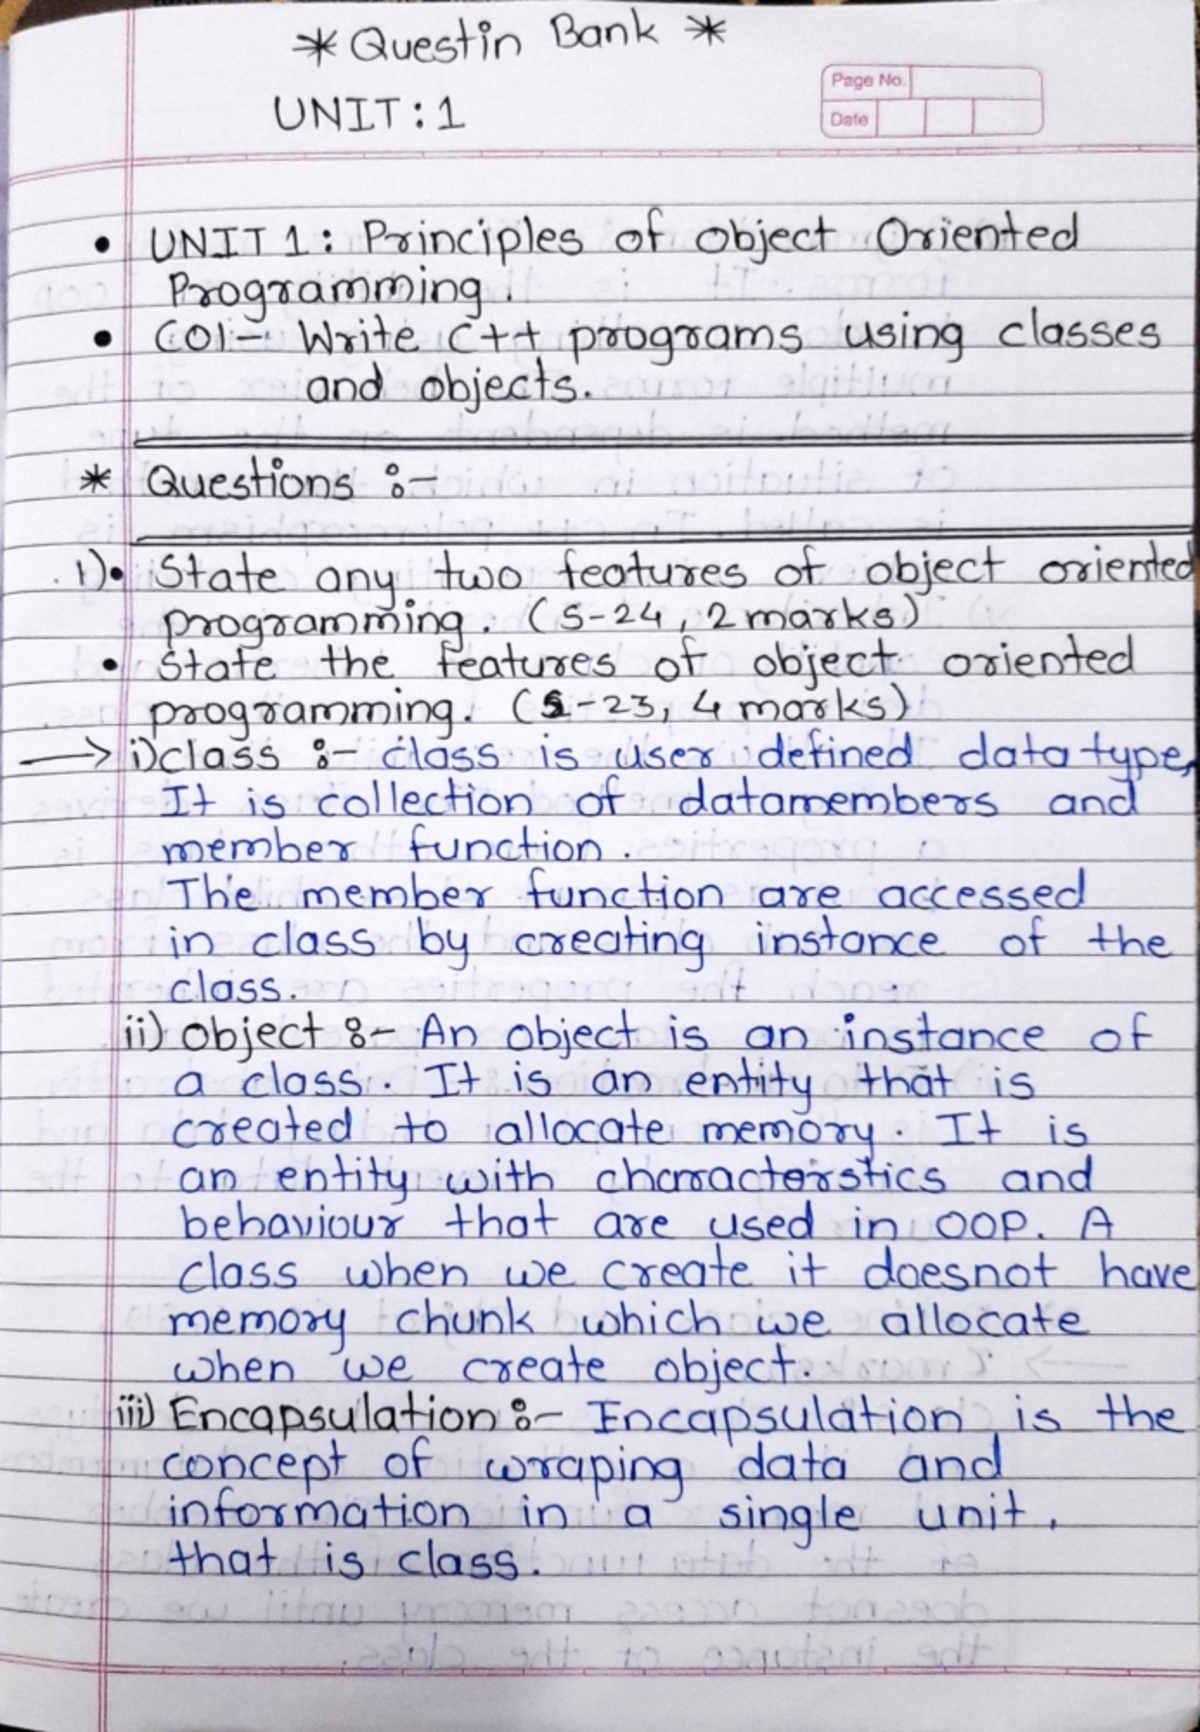 * Questin Bank *
UNIT:1
Page No.
Date
• UNIT 1: Principles of object Oriented
Programming.
• CO1- Write C++ programs using classes
and objects.
* Questions :-
1)• State any two features of object oriented
programming. (S-24, 2 marks)
• State the features of object oriented
programming. (S-23, 4 marks)
→ i) class :- class is user defined data type,
It is collection of datamembers and
member function.
The member function are accessed
in class by creating instance of the
class.
ii) Object :- An object is an instance of
a class. It is an entity that is
created to allocate memory. It is
an entity with characterstics and
behaviour that are used in OOP. A
class when we create it doesnot have
memory chunk which we allocate
when we create object.
iii) Encapsulation :- Encapsulation is the
concept of wraping data and
information in a single unit.
that is class.